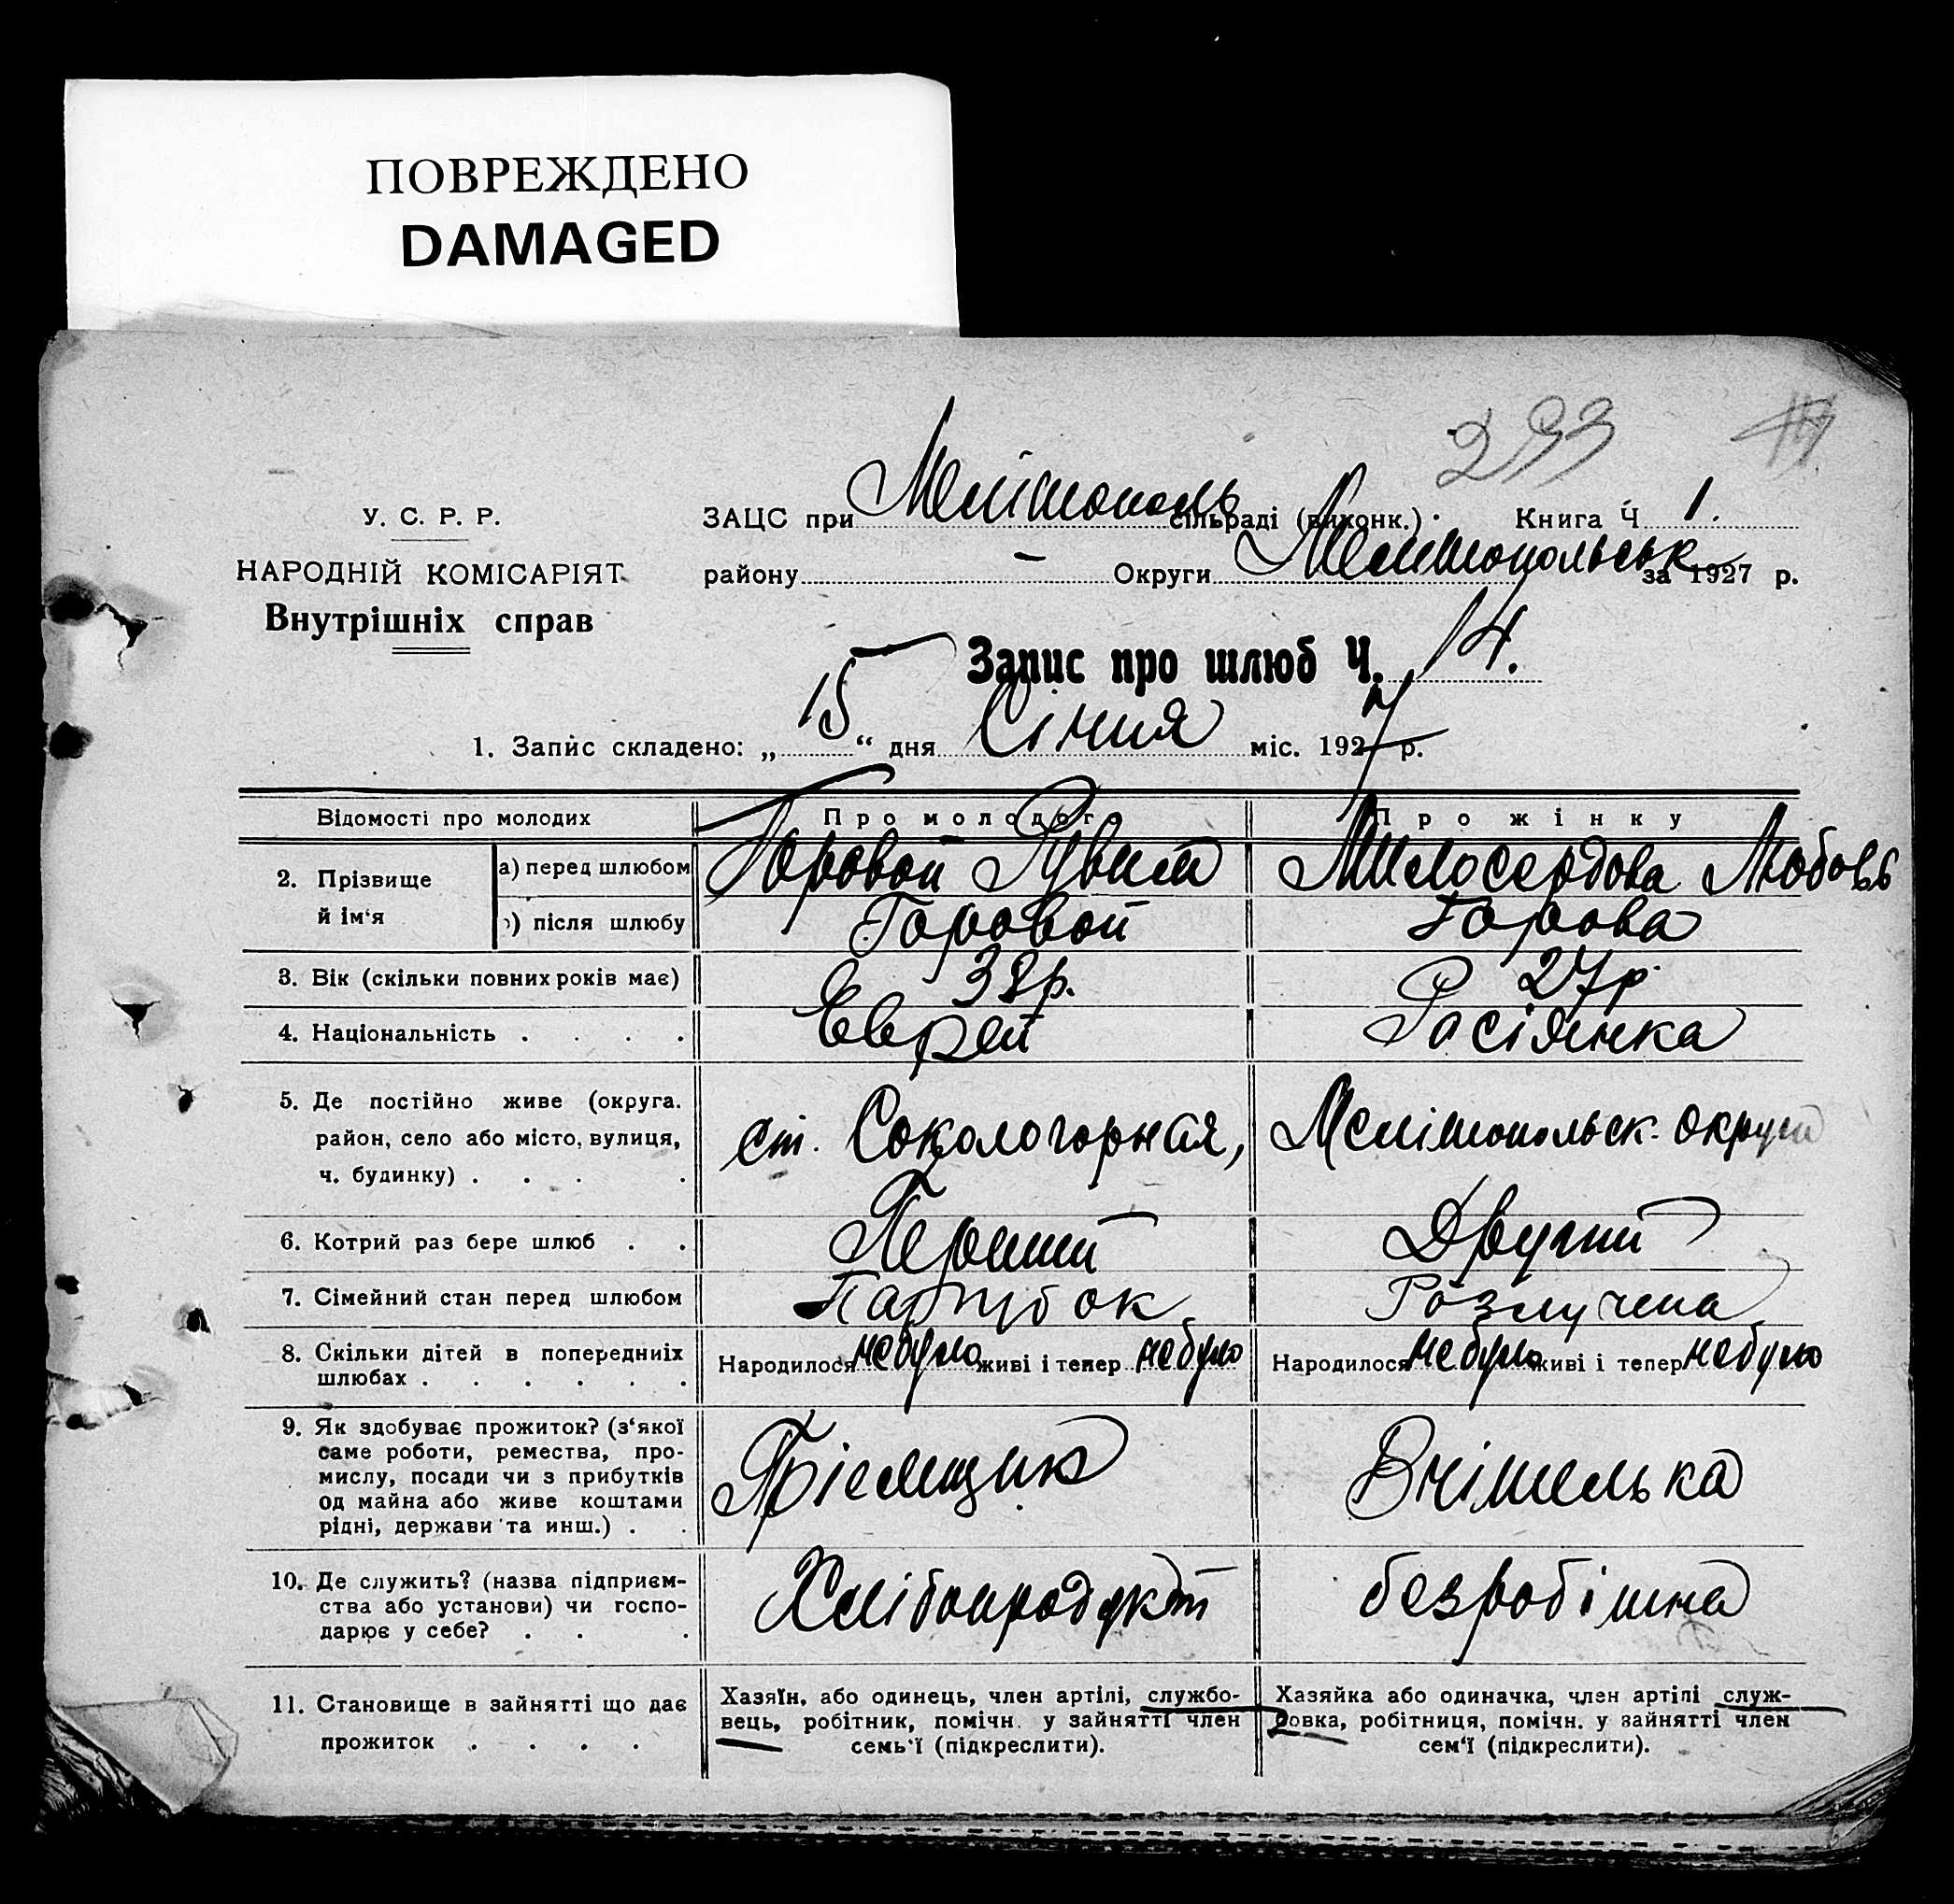 ПОВРЕЖДЕНО
DAMAGED
293
У. С. Р. Р.
НАРОДНІЙ КОМІСАРІЯТ
Внутрішніх справ
ЗАЦС при Мелітополь сільраді (виконк.) Книга Ч 1.
району — Округи Мелитопольськ за 1927 р.
Запис про шлюб Ч. 14.
1. Запис складено: „ 15 “ дня Січня міс. 1927 р.
Відомості про молодих Про молодого Про жінку
2. Прізвище й ім‘я
а) перед шлюбом Горовой Рувим Милосердова Любовь
б) після шлюбу Горовой Горова
3. Вік (скільки повних років має) 38р. 27р.
4. Національність . . . . Еврей Росіянка
5. Де постійно живе (округа. ст. Сокологорная, Мелітопольськ. округи
район, село або місто, вулиця,
ч. будинку) . . . .
6. Котрий раз бере шлюб . . Перший Другий
7. Сімейний стан перед шлюбом Парубок Розлучена
8. Скільки дітей в попередниіх Народилося небуло живі і тепер небуло Народилося небуло живі і тепер небуло
шлюбах . . . . . .
9. Як здобуває прожиток? (з‘якої Пріемщик Вчітелька
саме роботи, ремества, про-
мислу, посади чи з прибутків
од майна або живе коштами
рідні, держави та инш.) . .
10. Де служить? (назва підприєм- Хлібопродукт безробітна
ства або установи) чи госпо-
дарює у себе? . . .
11. Становище в зайнятті що дає
прожиток . . . .
Хазяїн, або одинець, член артілі, службо-
вець, робітник, помічн. у зайнятті член
семь‘ї (підкреслити).
Хазяйка або одиначка, член артілі служ-
бовка, робітниця, помічн. у зайнятті член
сем‘ї (підкреслити).